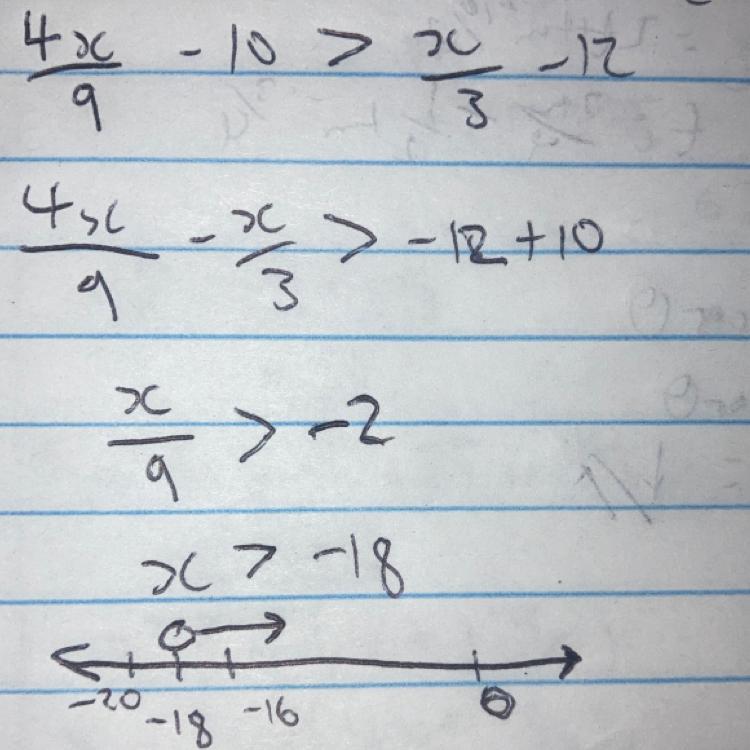 4x/9 - 10 > x/3 - 12
4x/9 - x/3 > -12 + 10
x/9 > -2
x > -18
-20 -18 -16 0